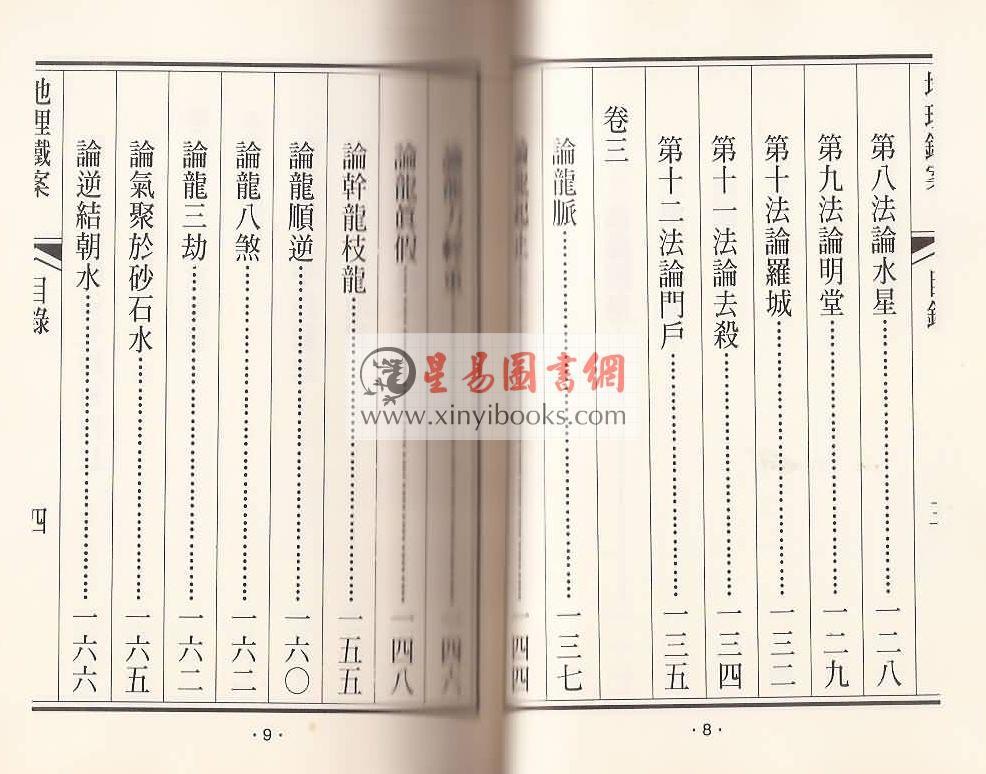 第八法論水星⋯⋯一二八
第九法論明堂⋯⋯一二九
第十法論羅城⋯⋯一三二
第十一法論去殺⋯⋯一三四
第十二法論門戶⋯⋯一三五
卷三
論龍脈⋯⋯一三七
一四四
·8·
一四六
論龍眞假⋯⋯一四八
論幹龍枝龍⋯⋯一五五
論龍順逆⋯⋯一六〇
論龍八煞⋯⋯一六二
論龍三劫⋯⋯一六二
論氣聚於砂石水⋯⋯一六五
論逆結朝水⋯⋯一六六
地理鐵案 目錄 四
·9·
星易圖書網
www.xinyibooks.com